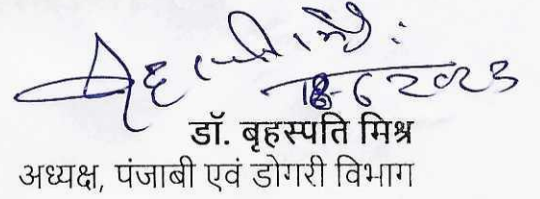 18-6 2023
डॉ. बृहस्पति मिश्र
अध्यक्ष, पंजाबी एवं डोगरी विभाग